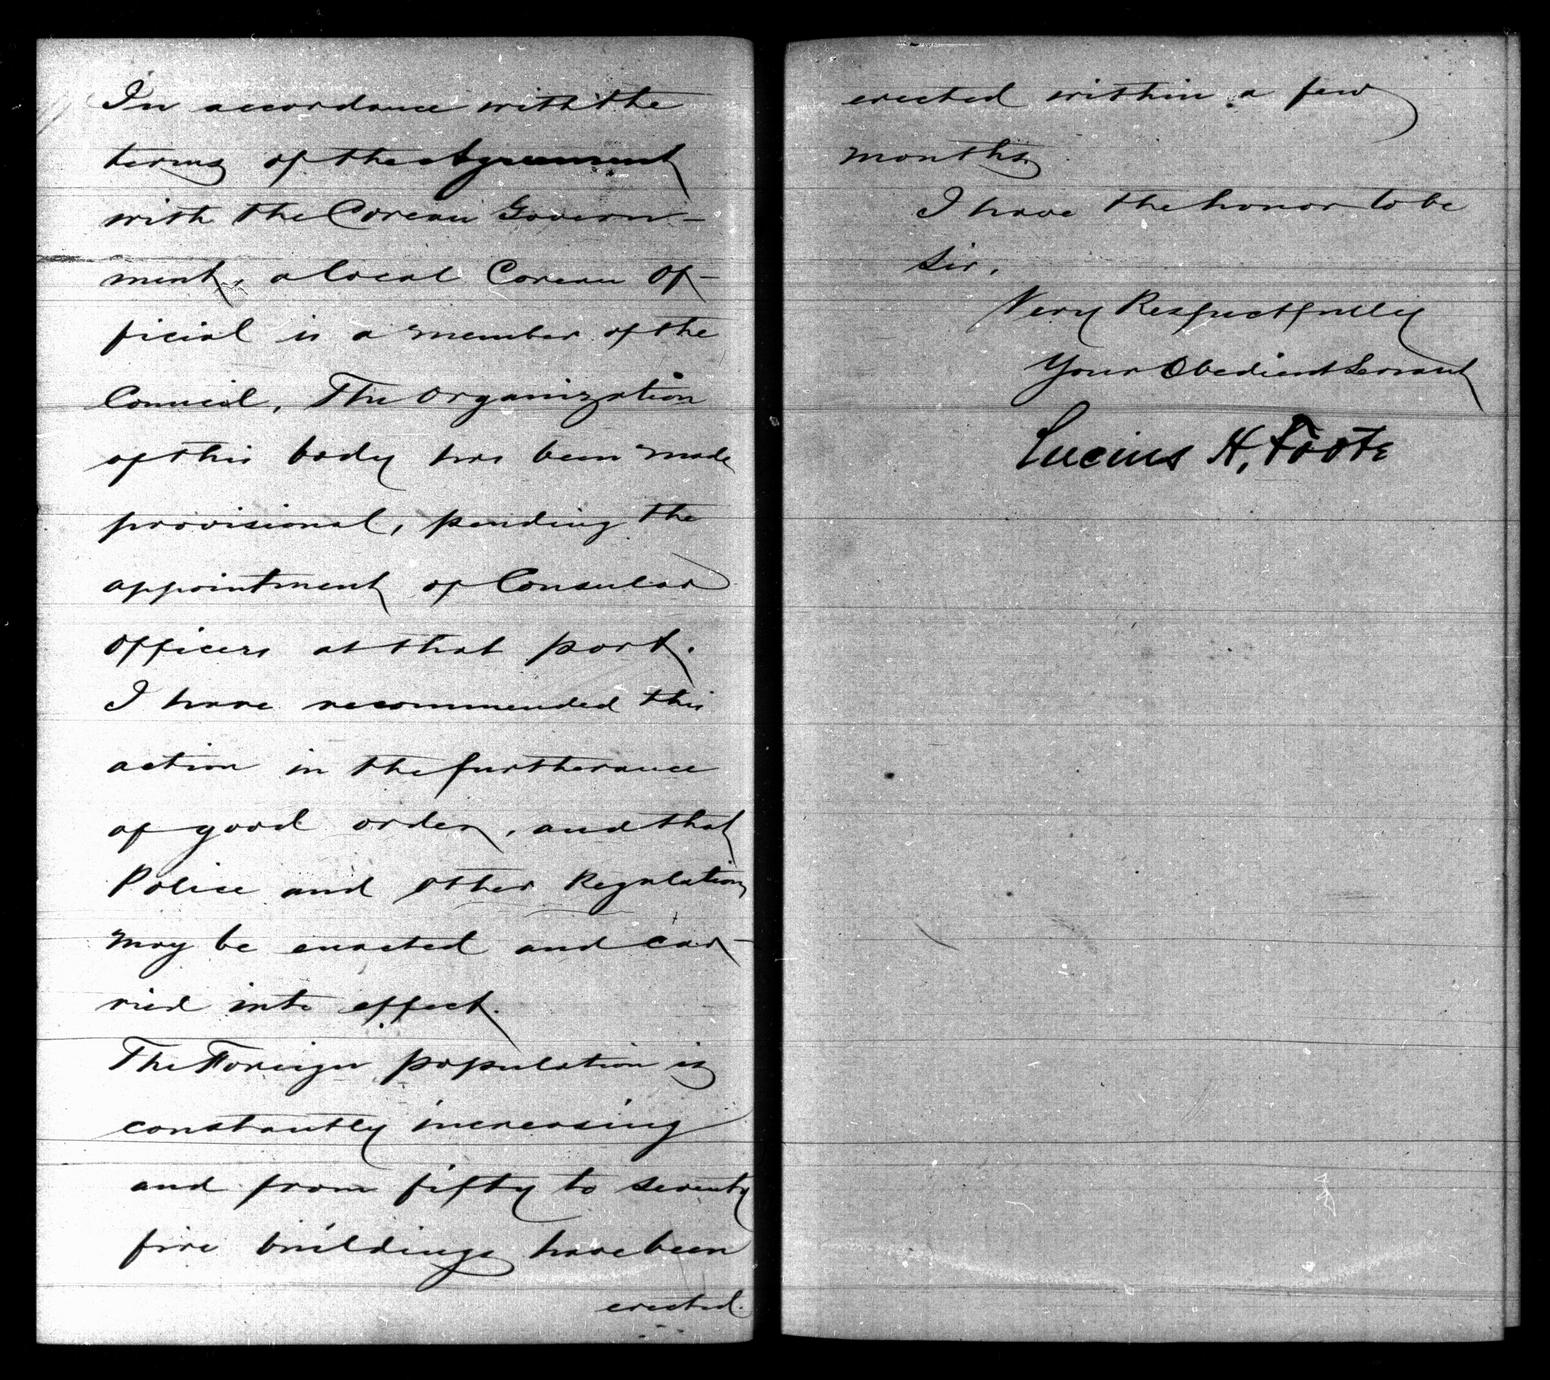 In accordance with the
terms of the Agreement
with the Corean Govern-
ment, a local Corean Of-
ficial is a member of the
Council. The Organization
of this body has been made
provisional, pending the
appointment of Consular
Officers at that port.
I have recommended this
action in the furtherance
of good order, and that
Police and other Regulations
may be enacted and car-
ried into effect.
The Foreign population is
constantly increasing
and from fifty to seventy
five buildings have been
erected.
erected within a few
months.
I have the honor to be
Sir,
Very Respectfully
Your Obedient Servant
Lucius H. Foote